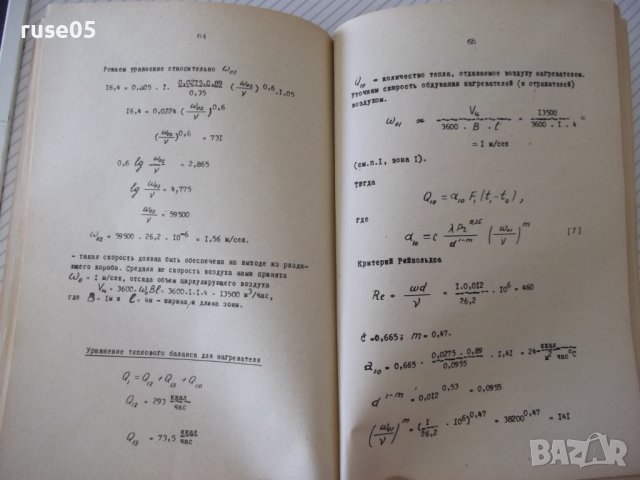 ruse05
64
Решаем уравнение относительно ω₀₂
I6,4 = 0,305 . I. 0,0275.0,89 / 0,35 (ω₀₂/ν)^0,6 .I,05
I6,4 = 0,0224 (ω₀₂/ν)^0,6
(ω₀₂/ν)^0,6 = 73I
0,6 lg ω₀₂/ν = 2,865
lg ω₀₂/ν = 4,775
ω₀₂/ν = 59500
ω₀₂ = 59500 . 26,2 . 10⁻⁶ = I,56 м/сек.
- такая скорость должна быть обеспечена на выходе из разда-
ющего короба. Средняя же скорость воздуха нами принята
ω₀ = I м/сек, отсюда объем циркулирующего воздуха
Vц = 3600.ω₀Bℓ = 3600.I.I.4 = I3500 м³/час,
где B = Iм и ℓ = 4м - ширина и длина зоны.
Уравнение теплового баланса для нагревателя
Q₁ = Q₁₂ + Q₁₃ + Q₁₀
Q₁₂ = 293 ккал/час
Q₁₃ = 73,5 ккал/час
65
Q₁₀ - количество тепла, отдаваемое воздуху нагревателем.
уточним скорость обдувания нагревателей (и отражателей)
воздухом.
ω₀₁ ≈ Vц / 3600 . B . ℓ = I3500 / 3600 . I . 4 =
= I м/сек
(см.п.I, зона I).
Тогда
Q₁₀ = α₁₀ F₁ (t₁ - t₀),
где
α₁₀ = c λPr^0,35 / d^1-m (ω₀₁/ν)^m [7]
Критерий Рейнольдса
Re = ωd/ν = I.0,0I2 / 26,2 . 10⁶ = 460
C =0,665; m = 0,47.
α₁₀ = 0,665 . 0,0275 . 0,89 / 0,0955 . I4I = 24 ккал / м² час °C
d^1-m = 0,0I2^0,53 = 0,0955
(ω₀₁/ν)^m = (I/26,2 . 10⁶)^0,47 = 38200^0,47 = I4I
BAZAR
bg